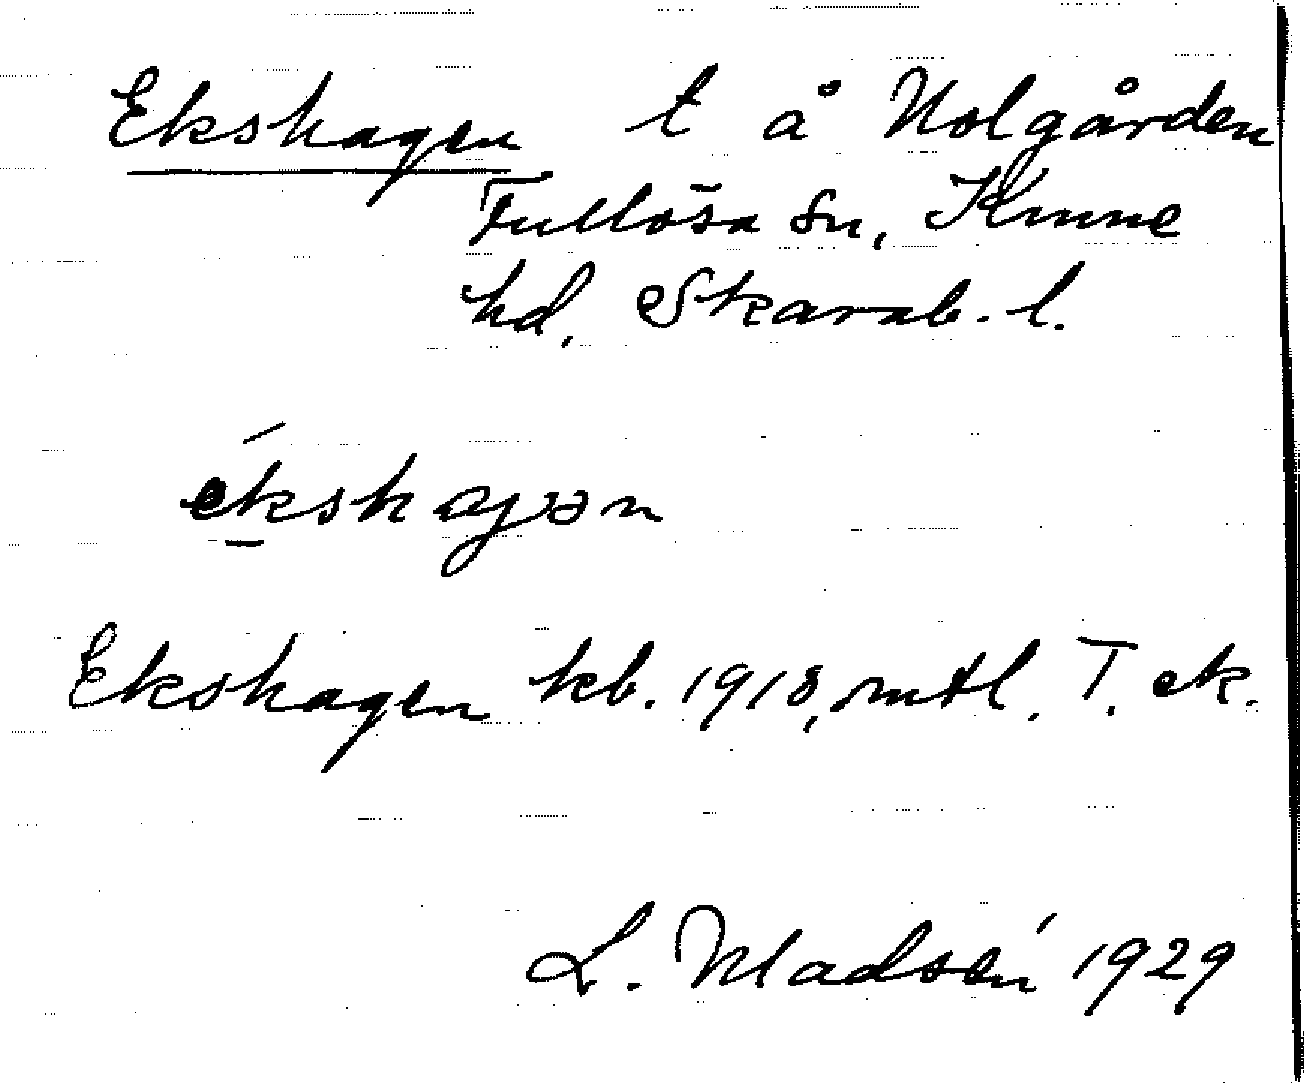 Ekshagen t å Nolgården
Fullösa sn, Kinne
hd, Skarab. l.
ékshagən
Ekshagen kb. 1918, mtl. T. ek.
L. Madsén 1929